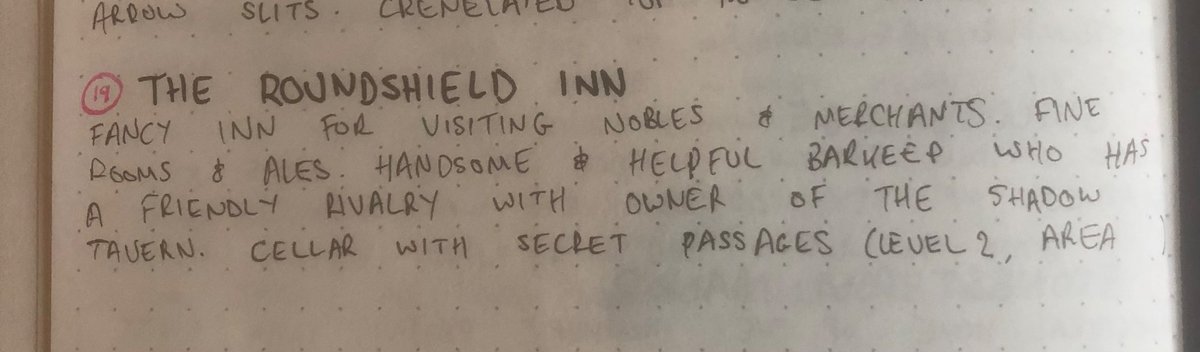 ARROW SLITS. CRENELATED
19 THE ROUNDSHIELD INN
FANCY INN FOR VISITING NOBLES & MERCHANTS. FINE
ROOMS & ALES. HANDSOME & HELPFUL BARKEEP WHO HAS
A FRIENDLY RIVALRY WITH OWNER OF THE SHADOW
TAVERN. CELLAR WITH SECRET PASSAGES (LEVEL 2, AREA )